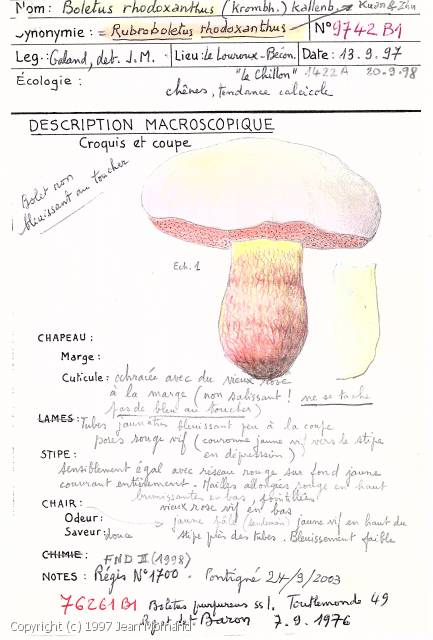 Nom: Boletus rhodoxanthus (krombh.) kallenb. Kuan & Zhu
Synonymie: = Rubroboletus rhodoxanthus N° 9742 B1
Leg.: Galand, det. J.M. Lieu: le Louroux-Bécon. Date: 13.9.97
"le Chillon" 1422A 20.9.98
Écologie: chênes, tendance calcicole
DESCRIPTION MACROSCOPIQUE
Croquis et coupe
Bolet non
bleuissant au toucher
Ech. 1
CHAPEAU:
Marge:
Cuticule: ochracée avec du vieux rose
à la marge (non salissant! ne se tache
pas de bleu au toucher)
LAMES: Tubes jaunâtres bleuissant peu à la coupe
pores rouge vif (couronne jaune vif vers le stipe
en dépression)
STIPE:
sensiblement égal avec réseau rouge sur fond jaune
couvrant entièrement. Mailles allongées rouge en haut
brunissantes en bas,
vieux rose vif en bas
CHAIR:
Odeur: jaune pâle jaune vif en haut du
Saveur: douce stipe près des tubes. Bleuissement faible
CHIMIE: FND III (1998)
NOTES: Régis N° 1700. Pontigné 24/9/2003
76261B1 Boletus purpureus ssl. Toutlemonde 49
det Baron 7.9.1976
Copyright (c) 1997 Jean Mornand